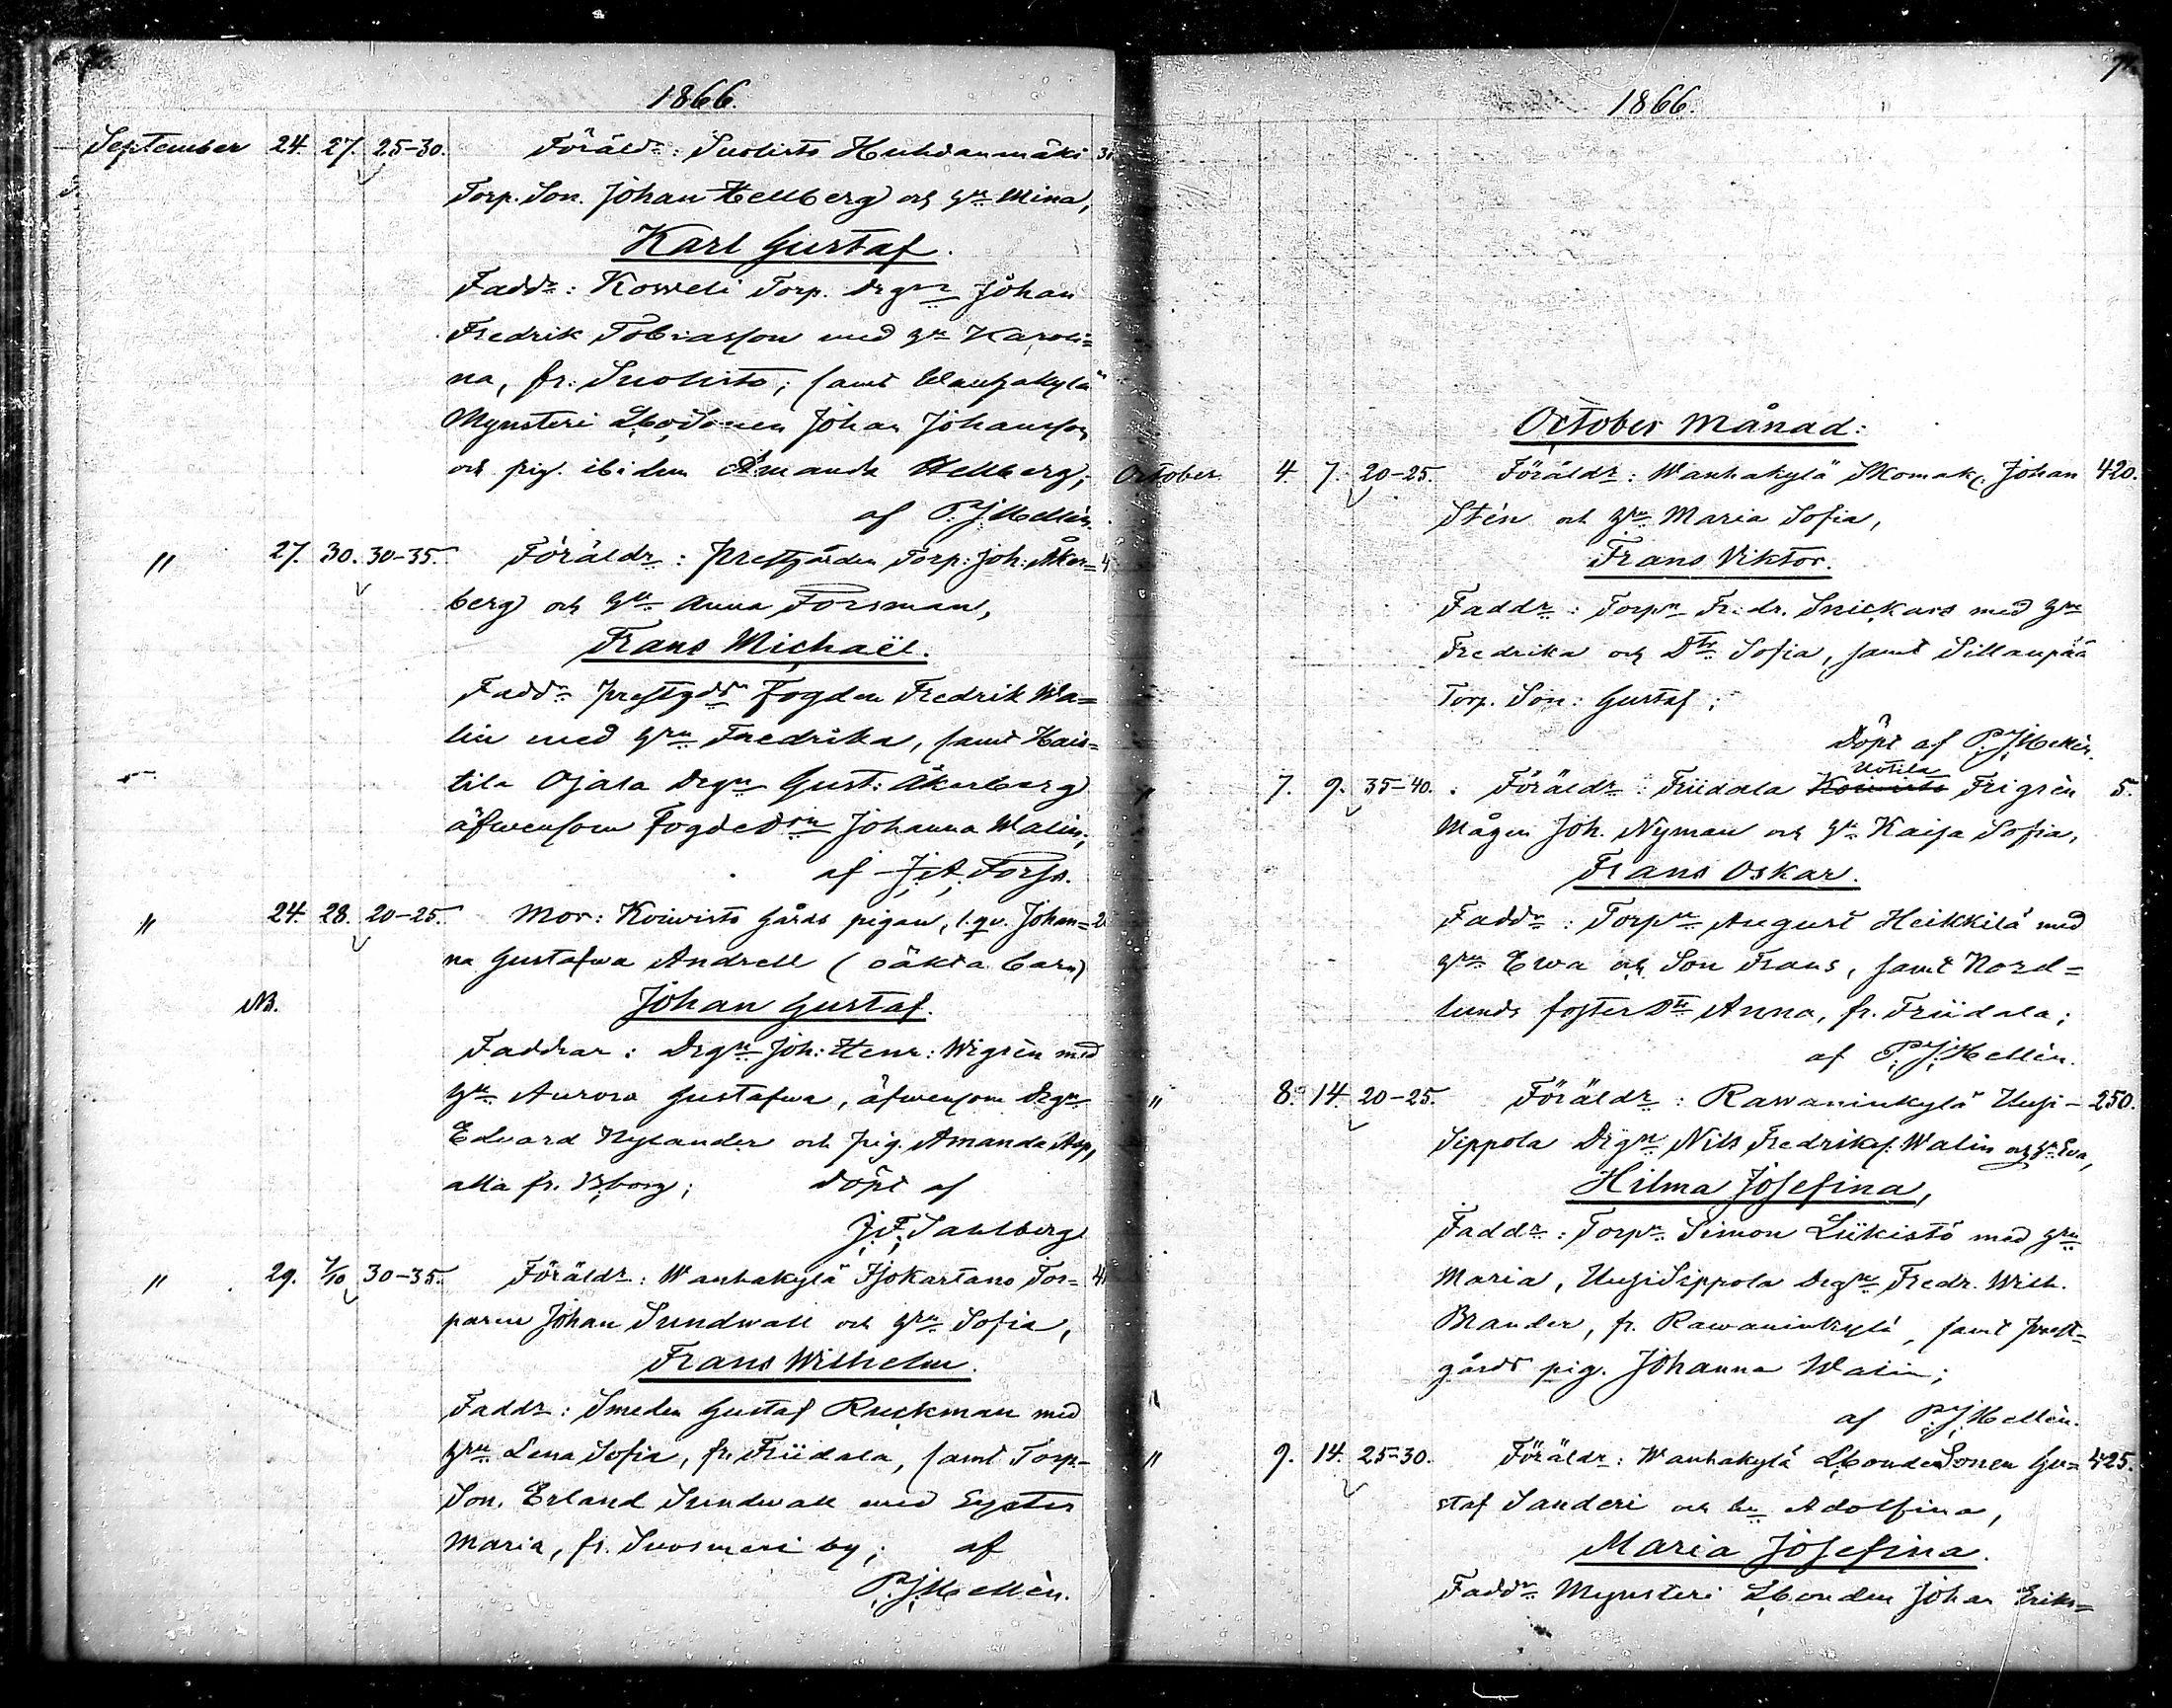 1866.
September 24. 27. 25-30. Föräldr: Suolisto Huhdanmäki
Torp. Son. Johan Hellberg och Hu Mina,
Karl Gustaf.
Faddr: Koweli Torp. Drgn Johan
Fredrik Tobiasson med Hu Karoli=
na, fr. Suolisto; samt Wanhakylä
Mynsteri LboSonen Johan Johansson
och pig. ibidem Amanda Hellberg;
af P.J. Hellén.
" 27. 30. 30-35. Föräldr: Prestgården Torp: Joh: Åker=
berg och Hu Anna Forsman,
Frans Michaël.
Faddr Prestgds Fogden Fredrik Wa=
lin med Hru Fredrika, samt Hais=
tila Ojala Drgn Gust: Åkerberg
äfwensom Fogdedrn Johanna Walin;
af J.A. Forss.
" 24. 28. 20-25. Mor: Koivisto Gårds pigan, l.qv. Johan=
na Gustafwa Andrell (oäkta barn)
NB. Johan Gustaf.
Faddrar: Drgn Joh: Henr: Wigrén med
Hu Aurora Gustafwa, äfwensom Drgn
Edvard Nylander och pig. Amanda Asp,
alla fr. Bborg; döpt af
J.F. Sahlberg
" 29. 7/10 30-35. Föräldr: Wanhakylä Isokartano Tor=
paren Johan Sundwall och Hru Sofia,
Frans Wilhelm.
Faddr: Smeden Gustaf Ruckman med
Hru Lena Sofia, fr. Friidala, samt Torp-
Son. Erland Sundwall med Syster
Maria, fr. Suosmeri by; af
P.J. Hellén.
1866.
October Månad:
October. 4. 7. 20-25. Föräldr: Wanhakylä Skomak. Johan 420.
Stén och Hru Maria Sofia,
Frans Viktor.
Faddr: Torpn Fr:dr. Snickars med Hru
Fredrika och Dtr Sofia, samt Sillanpää
Torp. Son: Gustaf;
Döpt af P.J. Hellén.
Uotila
" 7. 9. 35-40. Föräldr: Friidala Koivisto Frigrén 5.
Mågen Joh. Nyman och Hu Kaisa Sofia,
Frans Oskar.
Faddr: Torpn August Heikkilä med
Hru Ewa och Son Frans, samt Nord=
lunds foster Dtr Anna, fr. Friidala;
af P.J. Hellén.
" 8. 14. 20-25. Föräldr: Rawaninkylä Uusi- 250.
Sippola Drgn Nils Fredriks. Walin och Hu Eva,
Hilma Josefina,
Faddr: Torpn Simon Liikistö med Hru
Maria, UusiSippola Drgn Fredr. Wilh.
Brander, fr. Rawaninkylä, samt Prest=
gårds pig. Johanna Walin;
af P.J. Hellén.
" 9. 14. 25-30. Föräldr: Wanhakylä LbondeSonen Gu= 425.
staf Sanderi och Hu Adolfina,
Maria Josefina.
Faddr Mynsteri Lbonden Johan Eriks=